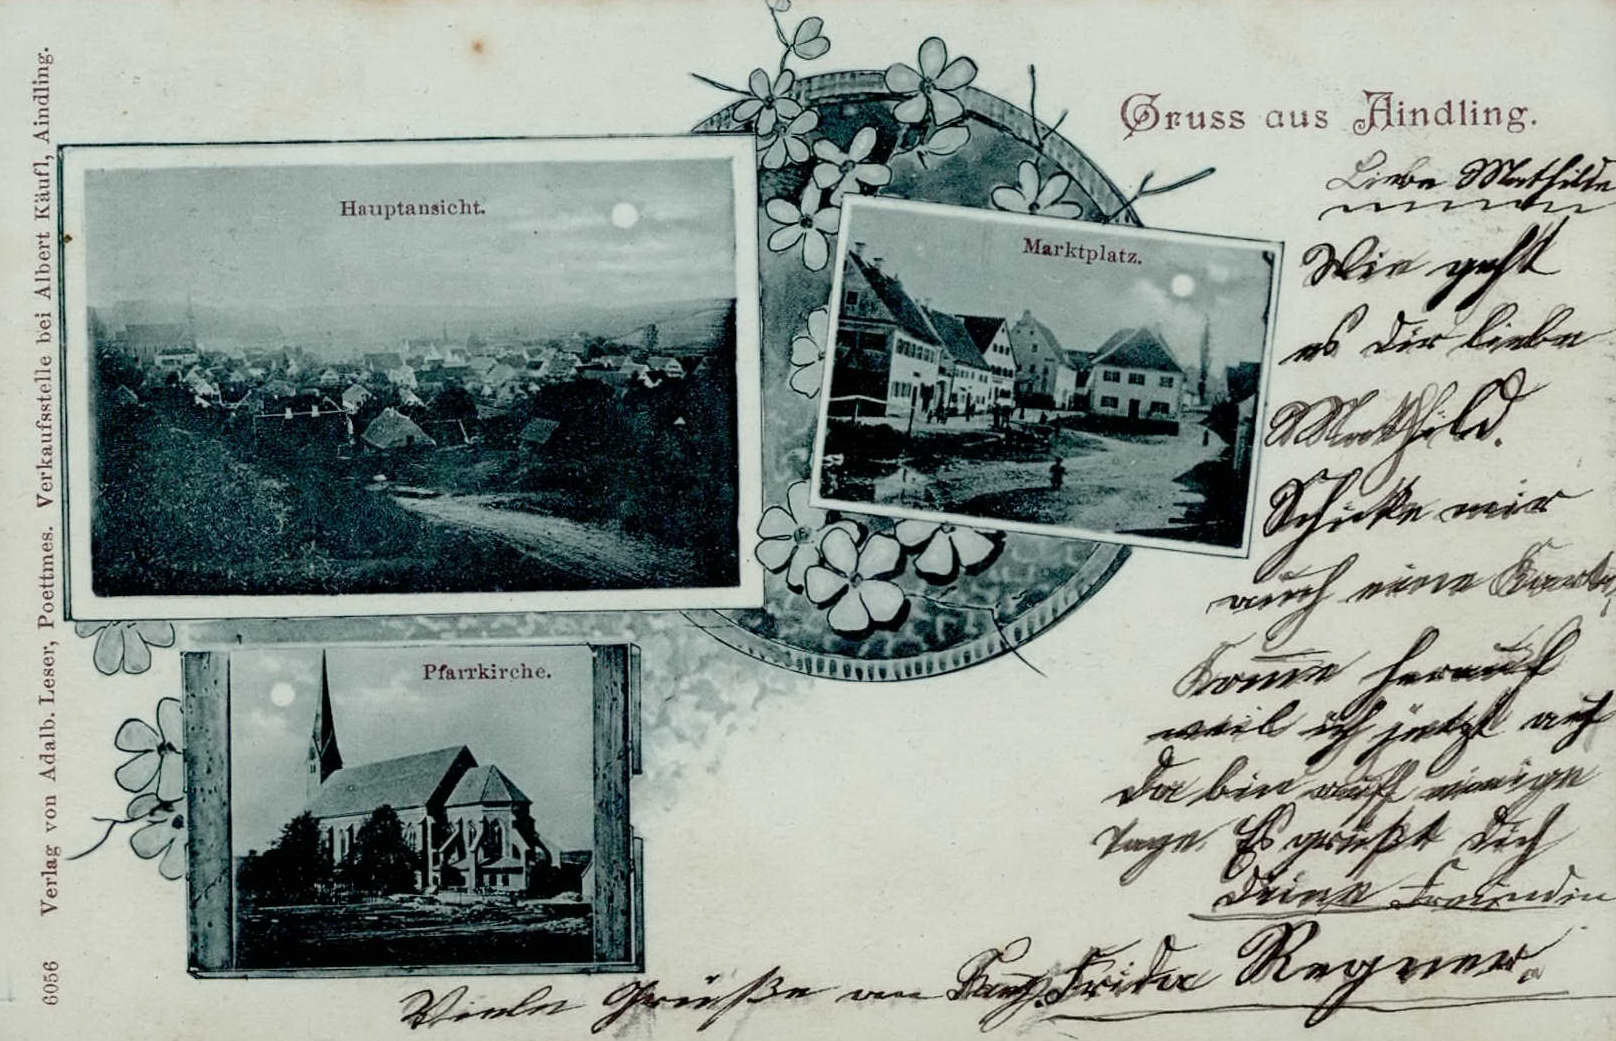 Gruss aus Aindling.
Hauptansicht.
Marktplatz.
Pfarrkirche.
Verlag von Adalb. Leser, Poettmes. Verkaufsstelle bei Albert Käufl, Aindling.
6056
Liebe Mathilde
Wie geht
es Dir liebe
Mathild.
Schicke mir
auch eine Karte,
Komme herauf
weil ich jetzt auf
Da bin auf einige
Tage. Es grüßt Dich
Deine Freundin
Frida Regner.
Viele Grüße an